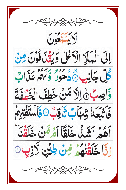 لَا يَسَّمَّعُونَ
إِلَى الْمَلَإِ الْأَعْلَىٰ وَيُقْذَفُونَ مِنْ
كُلِّ جَانِبٍ ۝ دُحُورًا وَلَهُمْ عَذَابٌ
وَاصِبٌ ۝ إِلَّا مَنْ خَطِفَ الْخَطْفَةَ
فَأَتْبَعَهُ شِهَابٌ ثَاقِبٌ ۝ فَاسْتَفْتِهِمْ
أَهُمْ أَشَدُّ خَلْقًا أَمْ مَنْ خَلَقْنَا
إِنَّا خَلَقْنَاهُمْ مِنْ طِينٍ لَازِبٍ ۝